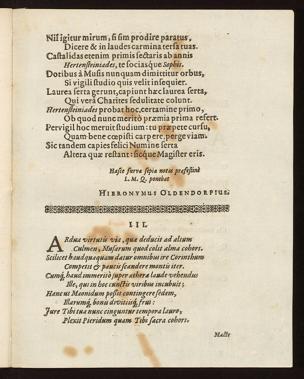 Nil igitur mirum, si sim prodire paratus,
Dicere & in laudes carmina tersa tuas.
Castalidas etenim primis sectaris ab annis
Hertensteiniades, te sociasque Sophis.
Dotibus à Musis nunquam dimittitur orbus,
Si vigili studio quis velit insequier.
Laurea serta gerunt, capiunt hæc laurea serta,
Qui verâ Charites sedulitate colunt.
Hertensteiniades probat hoc, certamine primo,
Ob quod nunc meritò præmia prima refert.
Pervigil hoc meruit studium: tu perpete cursu,
Quam bene cœpisti carpere, perge viam.
Sic tandem capies felici Numine serta
Altera quæ restant: sicque Magister eris.
L. M. Q. ponebat
HIERONYMUS OLDENDORPIUS.
III.
ARdua virtutis via, quæ deducit ad altum
Culmen, Musarum quod colit alma cohors.
Scilicet haud quaquam datur omnibus ire Corinthum
Competit & paucis scandere montis iter.
Cumque haud immeritò super æthera laude vehendus
Ille, qui in hoc cunctis viribus incubuit;
Hancue Meonidum possit contingere sedem,
Illarumque bonis divitiisque frui:
Jure Tibi tua nunc cinguntur tempora lauro,
Plexit Pieridum quam Tibi sacra cohors.
Macte